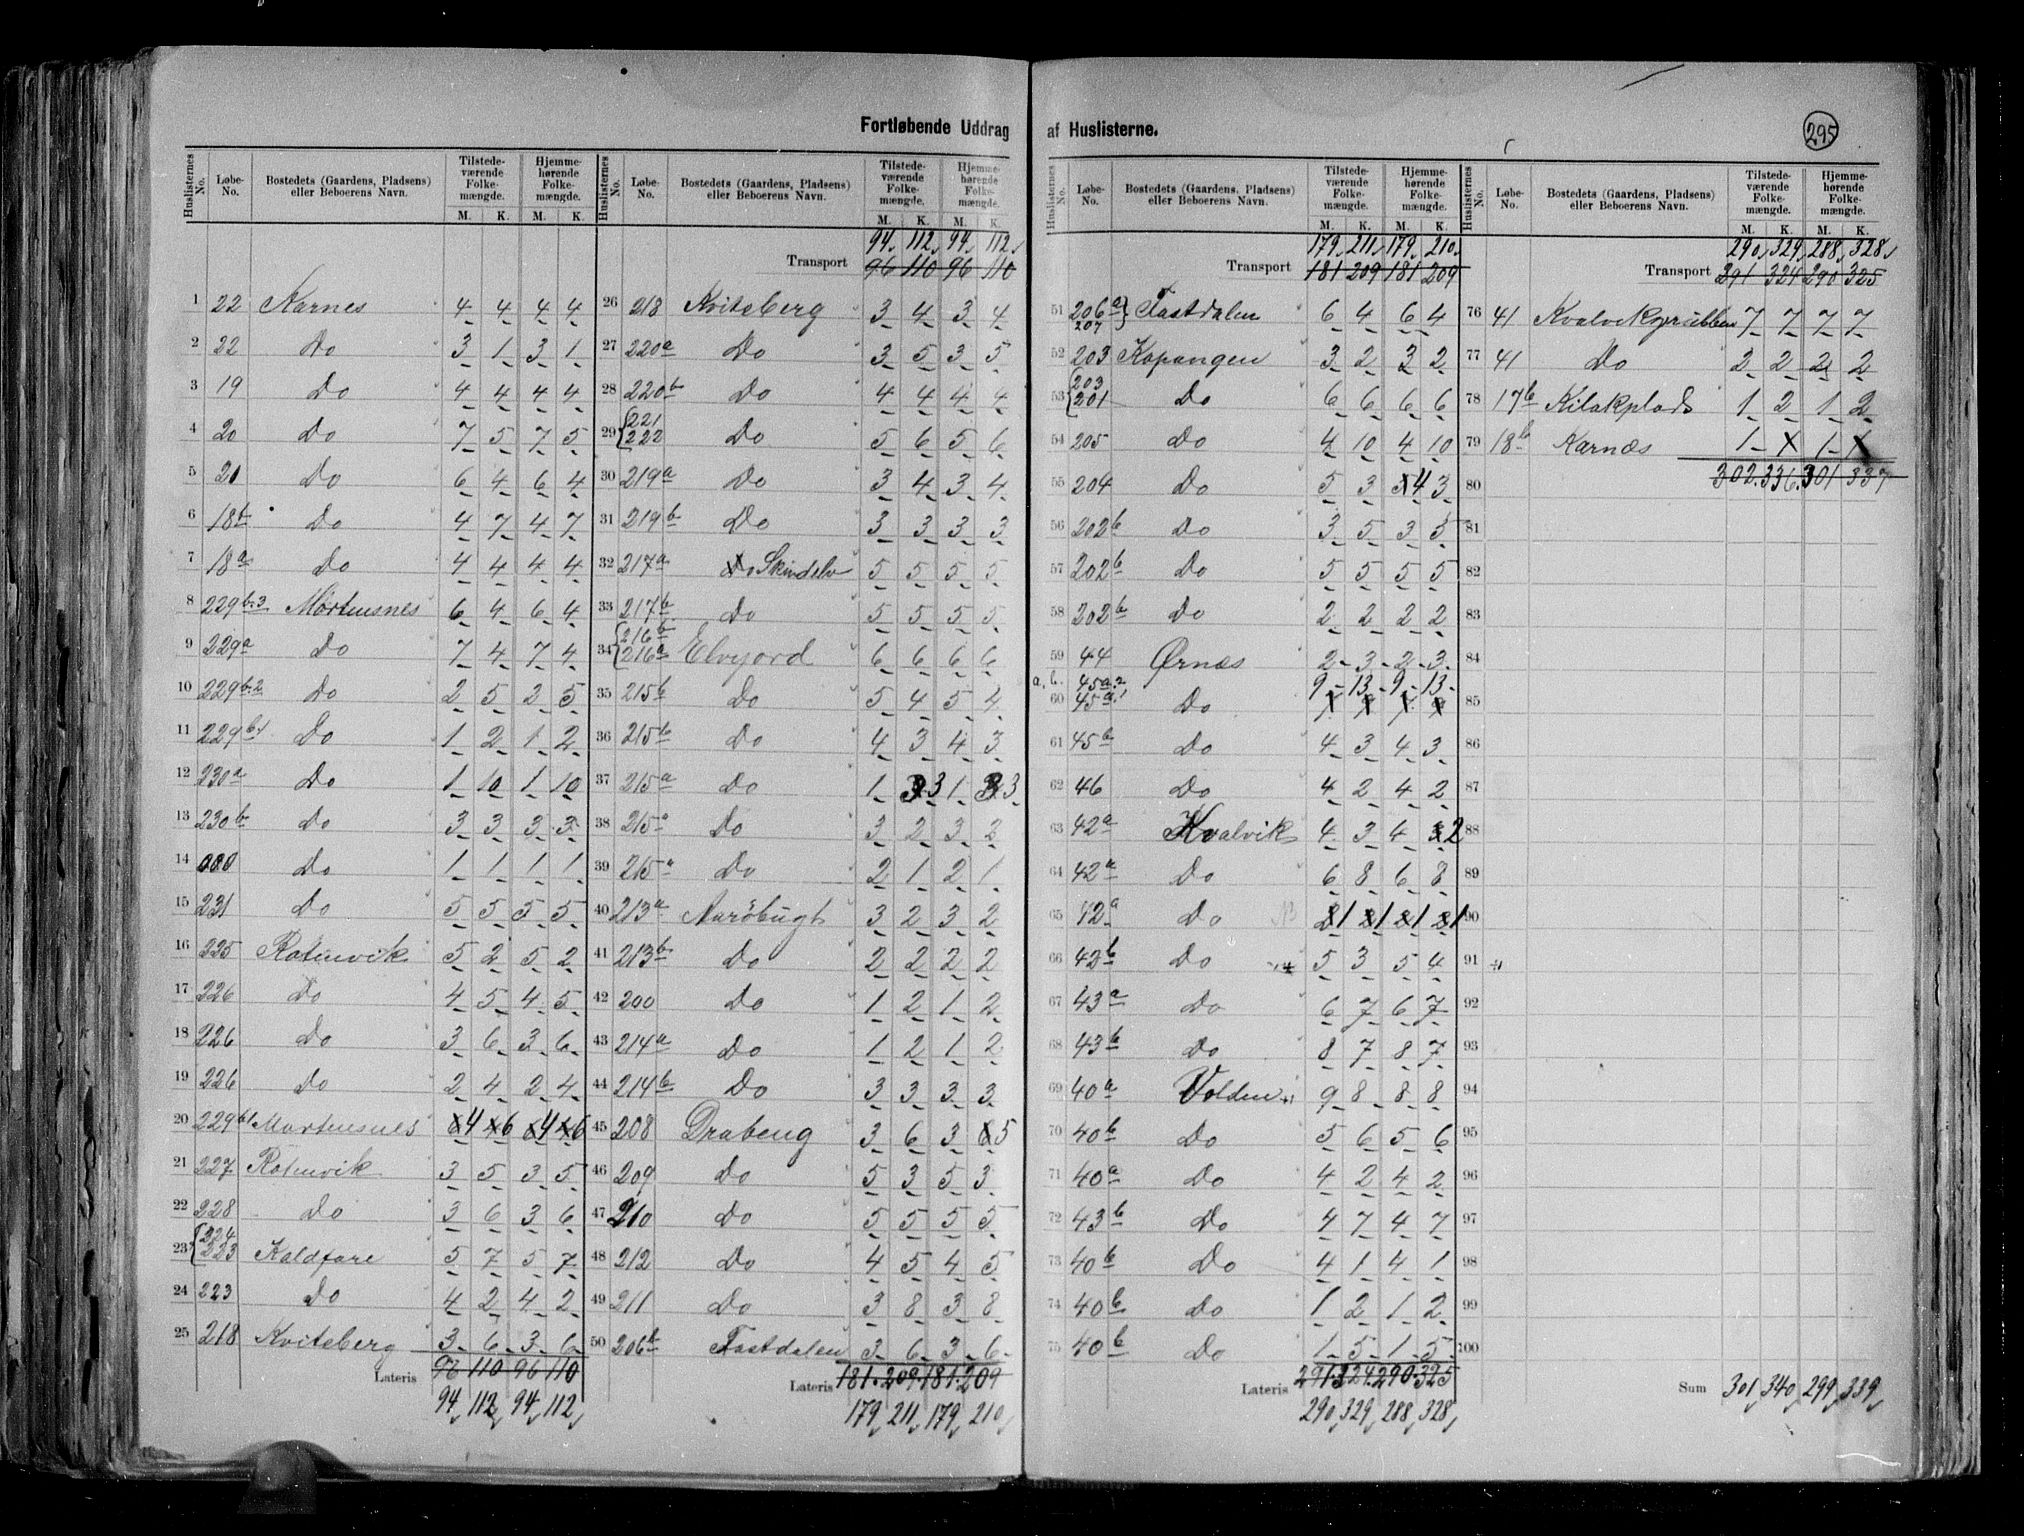 295
Fortløbende Uddrag af Huslisterne.
Huslisternes No. Løbe-No. Bostedets (Gaardens, Pladsens) eller Beboerens Navn. Tilstedeværende Folkemængde. M. K. Hjemmehørende Folkemængde. M. K.
1 22 Karnes 4 4 4 4
2 22 Do 3 1 3 1
3 19 Do 4 4 4 4
4 20 Do 7 5 7 5
5 21 Do 6 4 6 4
6 18b Do 4 7 4 7
7 18a Do 4 4 4 4
8 229b.3 Mortensnes 6 4 6 4
9 229a Do 7 4 7 4
10 229b.2 Do 2 5 2 5
11 229b1 Do 1 2 1 2
12 230a Do 1 10 1 10
13 230b Do 3 3 3 3
14 Do 1 1 1 1
15 231 Do 5 5 5 5
16 225 Rotenvik 5 2 5 2
17 226 Do 4 5 4 5
18 226 Do 3 6 3 6
19 226 Do 2 4 2 4
20 229b1 Mortensnes 4 6 4 6
21 227 Rotenvik 3 5 3 5
22 228 Do 3 6 3 6
23 224 223 Koldfare 5 7 5 7
24 223 Do 4 2 4 2
25 218 Kviteberg 3 6 3 6
96 110 96 110
Lateris
94 112 94 112
Huslisternes No. Løbe-No. Bostedets (Gaardens, Pladsens) eller Beboerens Navn. Tilstedeværende Folkemængde. M. K. Hjemmehørende Folkemængde. M. K.
94 112 94 112
Transport 96 110 96 110
26 218 Kviteberg 3 4 3 4
27 220a Do 3 5 3 5
28 220b Do 4 4 4 4
29 221 222 Do 5 6 5 6
30 219a Do 3 4 3 4
31 219b Do 3 3 3 3
32 217a Do Skindelv 5 5 5 5
33 217b Do 5 5 5 5
34 216b 216a Elvejord 6 6 6 6
35 215b Do 5 4 5 4
36 215b Do 4 3 4 3
37 215a Do 1 3 1 3
38 215a Do 3 2 3 2
39 215a Do 2 1 2 1
40 213a Naröbugt 3 2 3 2
41 213b Do 2 2 2 2
42 200 Do 1 2 1 2
43 214a Do 1 2 1 2
44 214b Do 3 3 3 3
45 208 Drabeng 3 6 3 5
46 209 Do 5 3 5 3
47 210 Do 5 5 5 5
48 212 Do 4 5 4 5
49 211 Do 3 8 3 8
50 206b Fastdalen 3 6 3 6
Lateris 181 209 181 209
179 211 179 210
Huslisternes No. Løbe-No. Bostedets (Gaardens, Pladsens) eller Beboerens Navn. Tilstedeværende Folkemængde. M. K. Hjemmehørende Folkemængde. M. K.
179 211 179 210
Transport 181 209 181 209
51 206a 207 Fastdalen 6 4 6 4
52 203 Kopangen 3 2 3 2
53 203 201 Do 6 6 6 6
54 205 Do 4 10 4 10
55 204 Do 5 3 4 3
56 202b Do 3 5 3 5
57 202b Do 5 5 5 5
58 202b Do 2 2 2 2
59 44 Ørnæs 2 3 2 3
a, b. 45a.2 9 13 9 13
60 45a.1 Do
61 45b Do 4 3 4 3
62 46 Do 4 2 4 2
63 42a Kvalvik 4 3 4 2
64 42a Do 6 8 6 8
65 42a Do 1 1 1 1
66 42b Do 5 3 5 4
67 43a Do 6 7 6 7
68 43b Do 8 7 8 7
69 40a Volden 9 8 8 8
70 40b Do 5 6 5 6
71 40a Do 4 2 4 2
72 43b Do 4 7 4 7
73 40b Do 4 1 4 1
74 40b Do 1 2 1 2
75 40b Do 1 5 1 5
Lateris 291 324 290 325
290 329 288 328
Huslisternes No. Løbe-No. Bostedets (Gaardens, Pladsens) eller Beboerens Navn. Tilstedeværende Folkemængde. M. K. Hjemmehørende Folkemængde. M. K.
290 329 288 328
Transport 291 324 290 325
76 41 Kvalvikgrubben 7 7 7 7
77 41 Do 2 2 2 2
78 17b Kilakplads 1 2 1 2
79 18b Karnæs 1 x 1 1
80 302 336 301 337
81
82
83
84
85
86
87
88
89
90
91
92
93
94
95
96
97
98
99
100
Sum 301 340 299 339